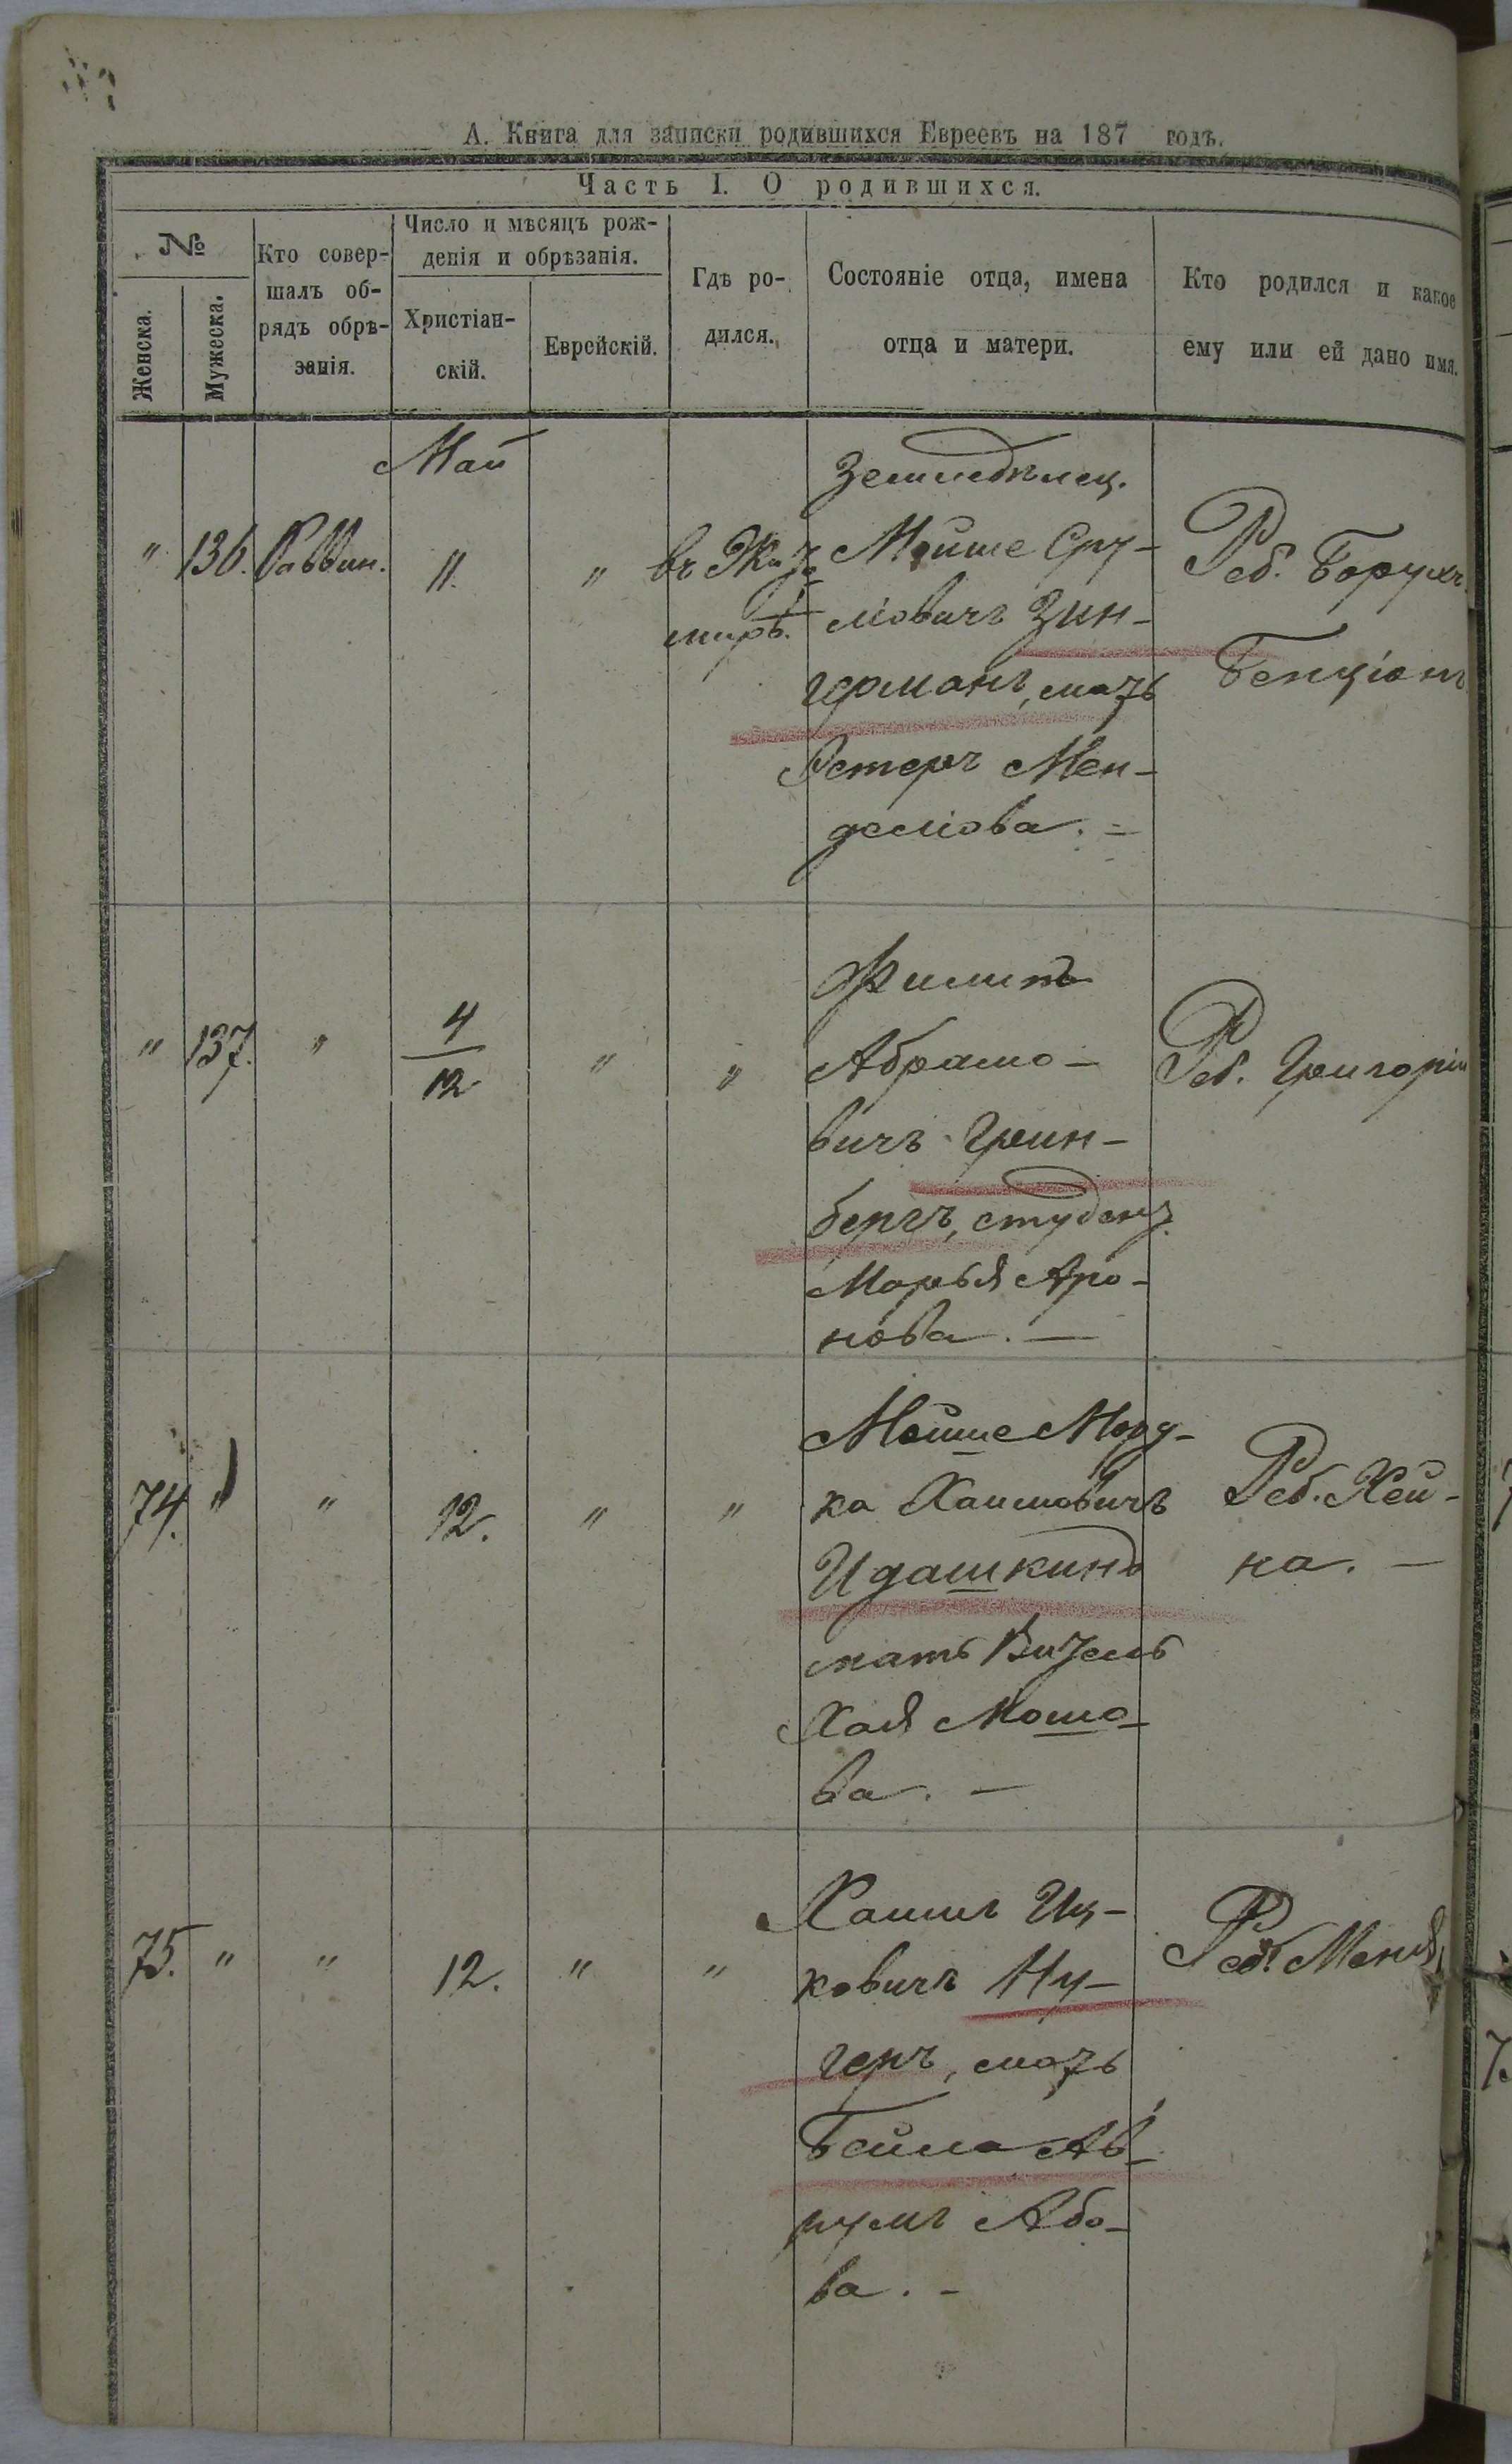 А. Книга для записки родившихся Евреевъ на 187 годъ.
Часть I. О родившихся.
№
Женска.
Мужеска.
Кто совер-
шалъ об-
рядъ обрѣ-
занія.
Число и мѣсяцъ рож-
денія и обрѣзанія.
Христіан-
скій.
Еврейскій.
Гдѣ ро-
дился.
Состояніе отца, имена
отца и матери.
Кто родился и какое
ему или ей дано имя.
Май
" 136. Раввин. 11. " въ Жито
мирѣ.
Земледѣлец.
Мойше Сру-
лiовичъ Зин-
германъ, мать
Эстеръ Мен-
делiова. =
Реб. Борухъ
Бенціонъ
" 137. " 4/12 " "
Филипъ
Абрамо-
вичъ Грин-
бергъ, студент.
Марья Аро-
нова. —
Реб. Григорій
74. " " 12. " "
Мойше Морд-
ка Хаимовичъ
Идашкинъ
мать
Хая Мошо-
ва. —
Реб. Хей-
на. —
75. " " 12. " "
Хаимъ Иц-
ковичъ
геръ, мать
Бейла Ав-
румъ Або-
ва. -
Реб. Меня